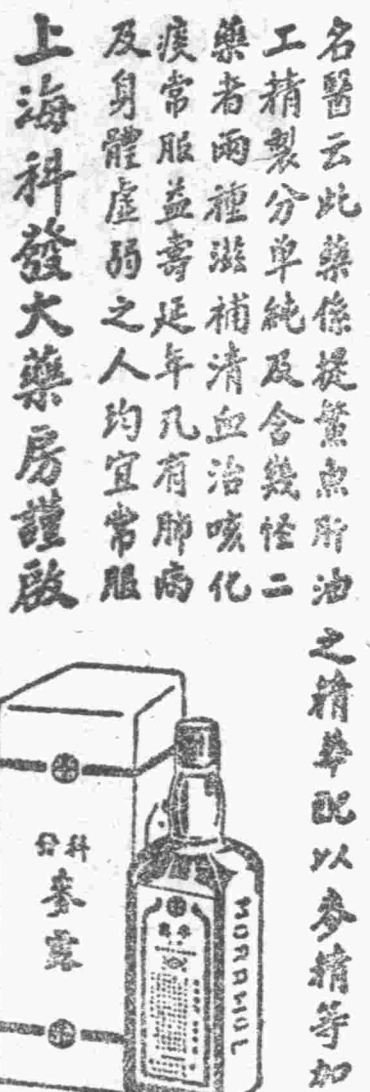 名醫云此藥係提鱉魚肝油之精華配以麥精等加
工精製分单純及含幾怪二
藥者兩種滋補清血治咳化
痰常服益壽延年凡有肺病
及身體虛弱之人均宜常服
上海科發大藥房謹啟
科發
麥露
MORRHUOL